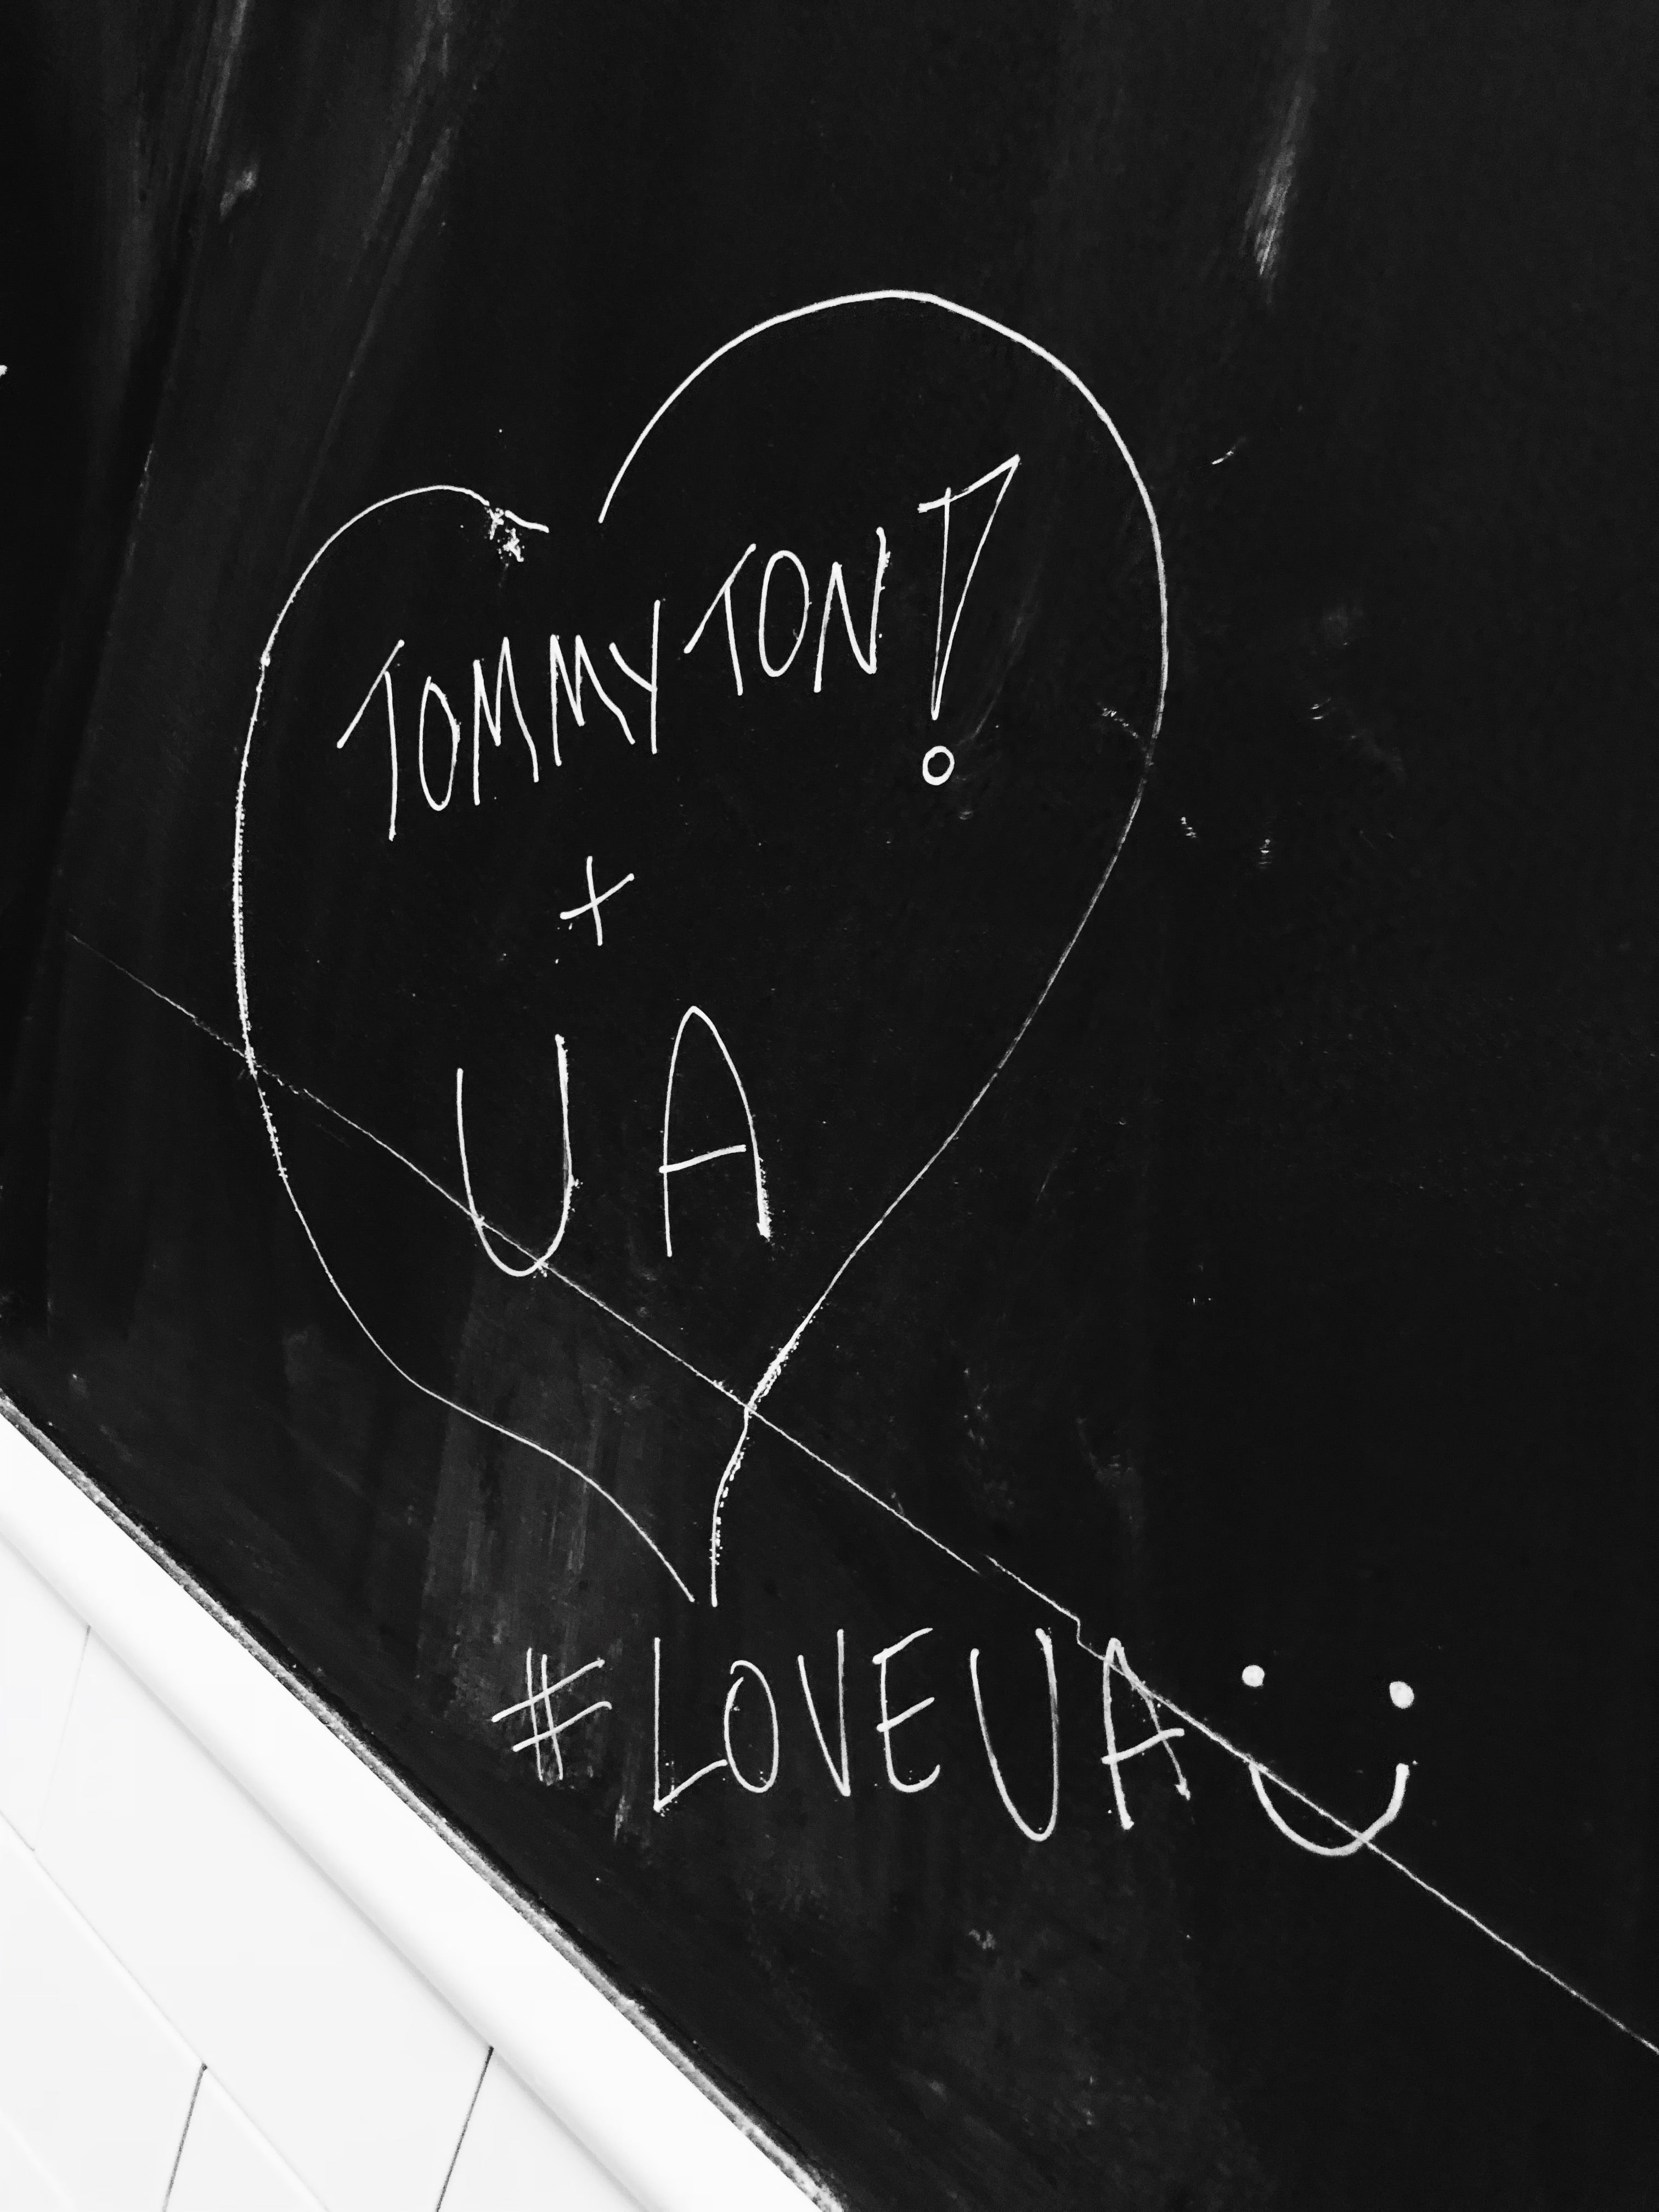 TOMMY TON!
+
UA
#LOVEUA